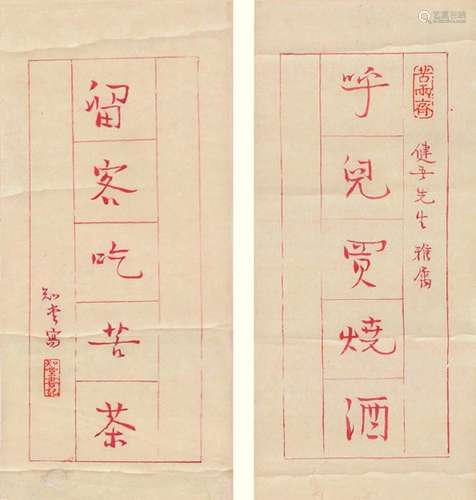 苦雨齋
健吾先生雅屬
呼兒買燒酒
留客吃苦茶
知堂寫
知堂書記